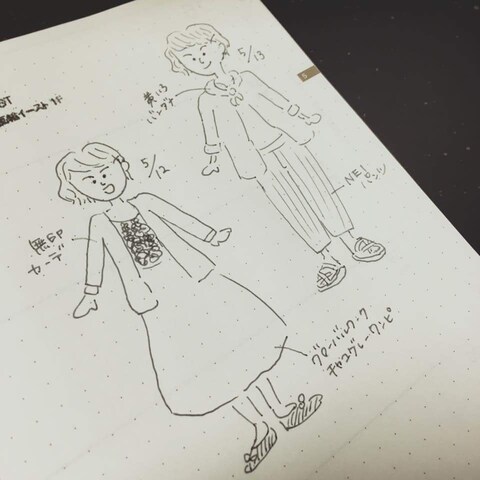 5/13
黄いろ
バンダナ
NEI
パンツ
5/12
無印
カーデ
グローバルワーク
チャコグレーワンピ
イースト1F
5